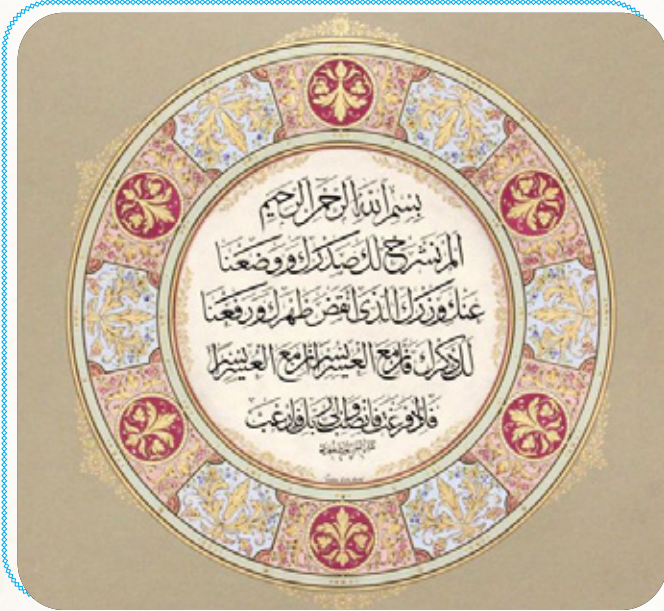 بسم الله الرحمن الرحيم
الم نشرح لك صدرك ووضعنا
عنك وزرك الذي انقض ظهرك ورفعنا
لك ذكرك فان مع العسر يسرا ان مع العسر يسرا
فاذا فرغت فانصب والى ربك فارغب